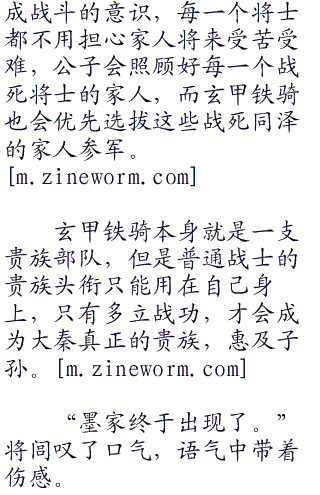 成战斗的意识，每一个将士
都不用担心家人将来受苦受
难，公子会照顾好每一个战
死将士的家人，而玄甲铁骑
也会优先选拔这些战死同泽
的家人参军。
[m.zineworm.com]
玄甲铁骑本身就是一支
贵族部队，但是普通战士的
贵族头衔只能用在自己身
上，只有多立战功，才会成
为大秦真正的贵族，惠及子
孙。[m.zineworm.com]
“墨家终于出现了。”
将闾叹了口气，语气中带着
伤感。